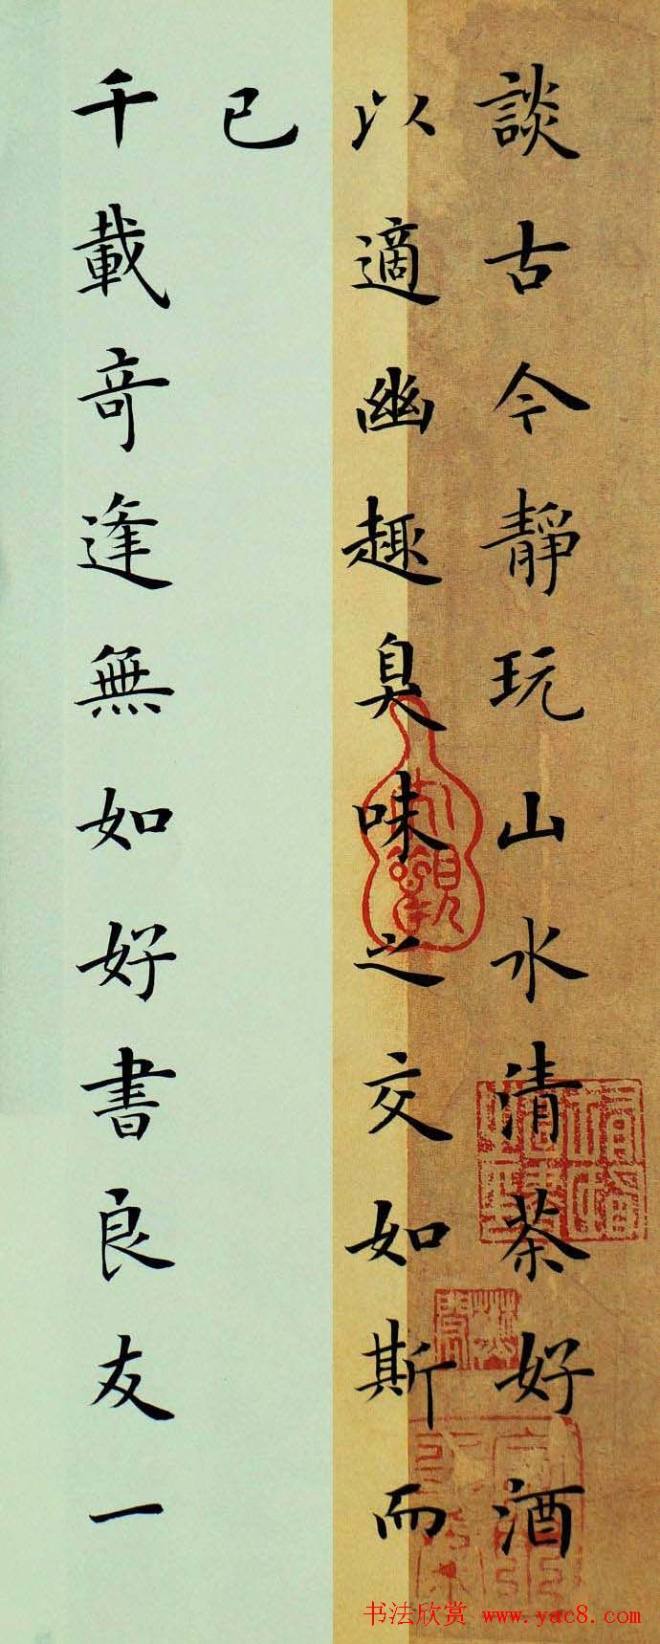 談古今靜玩山水清茶好酒
以適幽趣臭味之交如斯而
已
千載奇逢無如好書良友一
书法欣赏 www.yac8.com